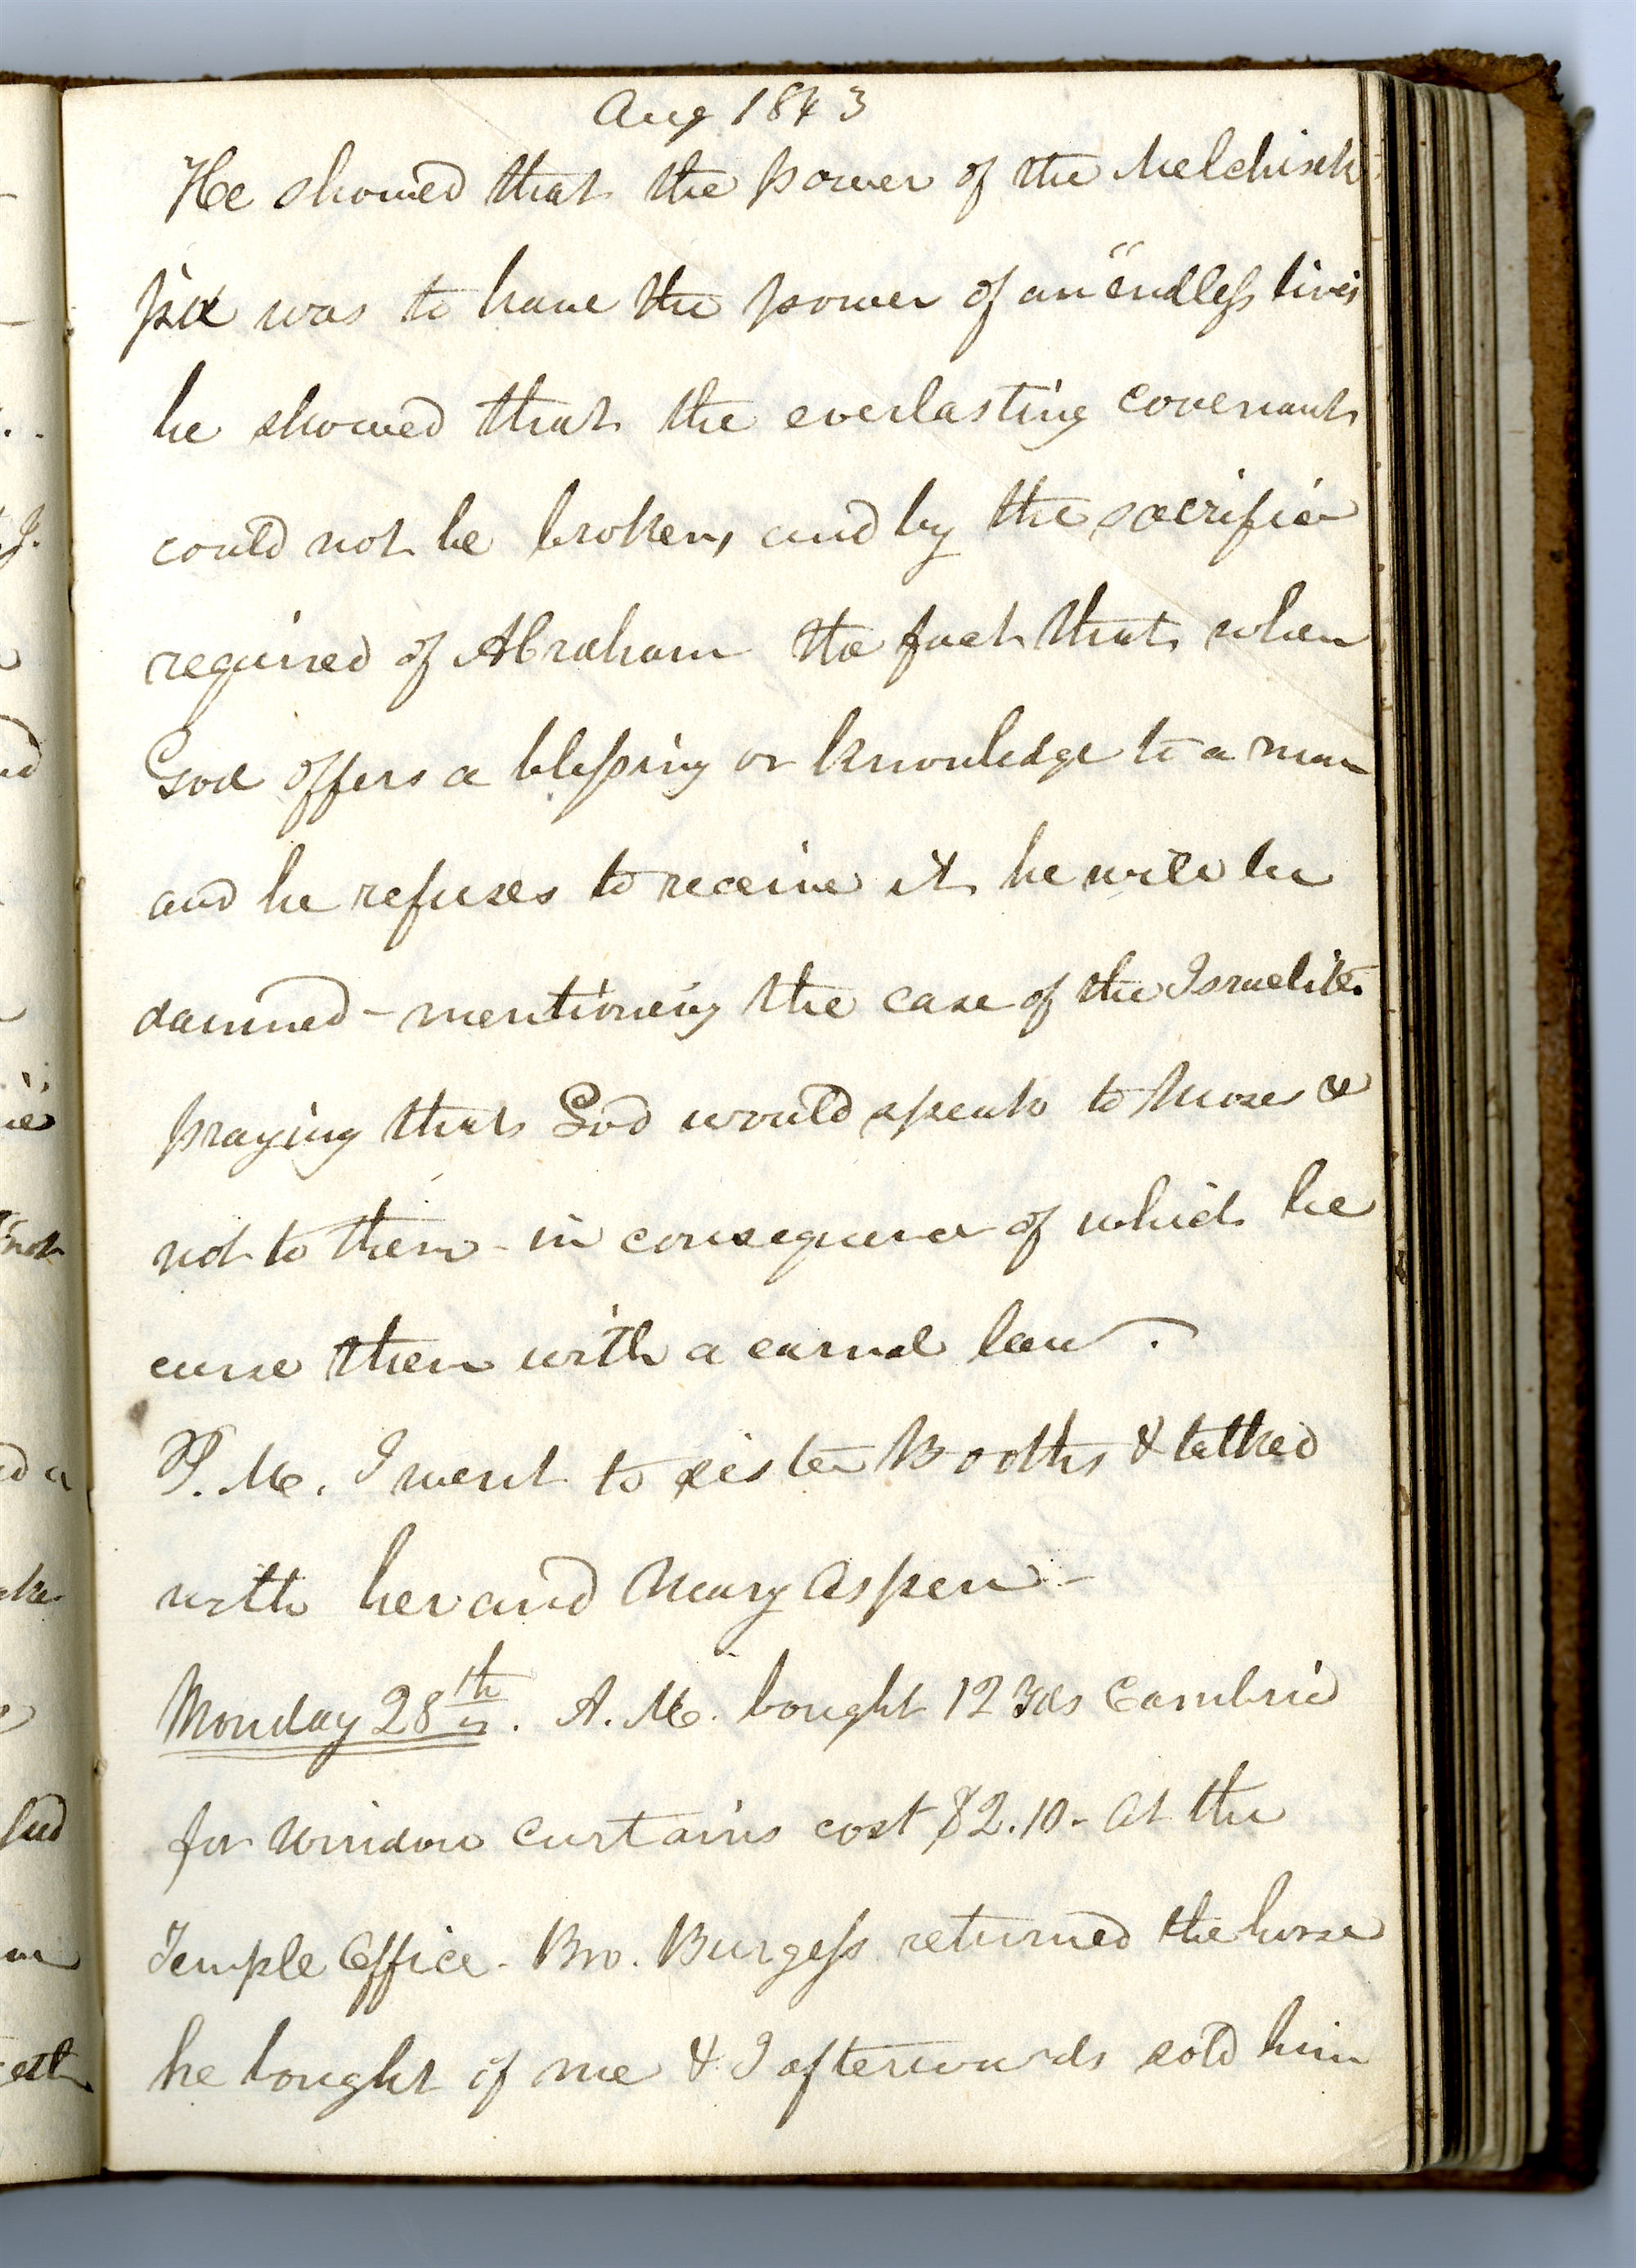 Aug 1843
He showed that the power of the Melchisek
p'd was to have the power of an "endless lives
he showed that the everlasting covenants
could not be broken, and by the sacrifice
required of Abraham the fact that when
God offers a blessing or knowledge to a man
and he refuses to receive it he will be
damned - mentioning the case of the Israelites
praying that God would speak to Moses &
not to them - in consequence of which he
curse them with a carnal law.
P.M. I went to sister Booths & talked
with her and Mary Aspen -
Monday 28th. A.M. bought 12 yds Cambric
for window curtains cost $2.10 - at the
Temple Office - Bro. Burgess returned the horse
he bought of me & I afterwards sold him
not